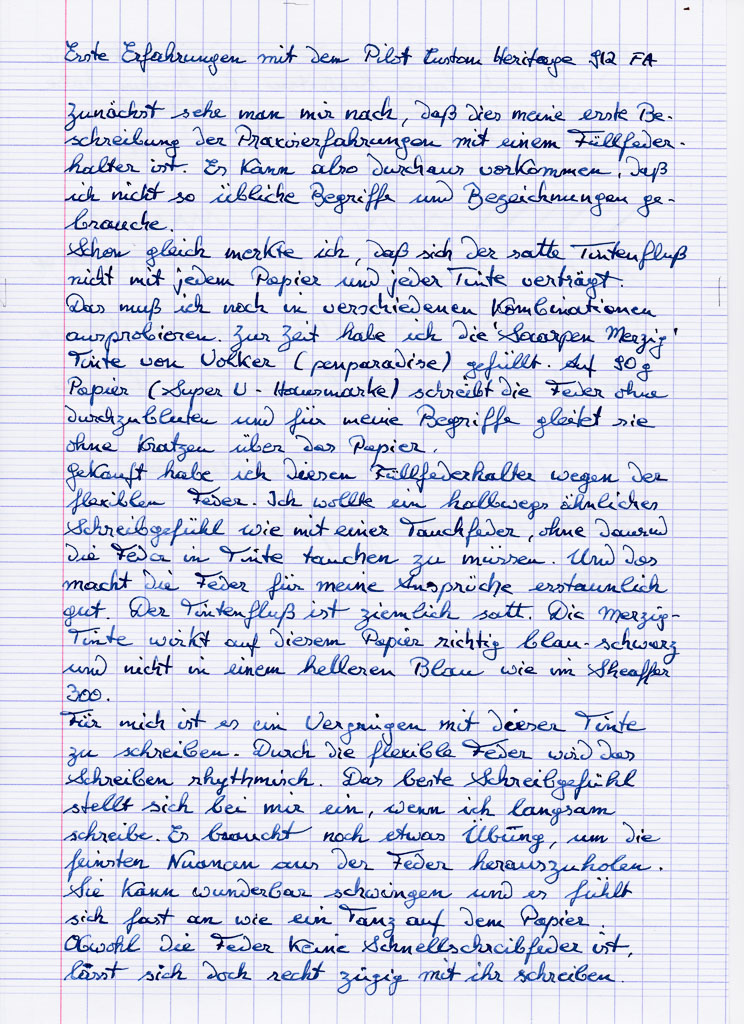 Erste Erfahrungen mit dem Pilot Custom Heritage 912 FA
Zunächst sehe man mir nach, daß dies meine erste Be-
schreibung der Praxiserfahrungen mit einem Füllfeder-
halter ist. Es kann also durchaus vorkommen, daß
ich nicht so übliche Begriffe und Bezeichnungen ge-
brauche.
Schon gleich merkte ich, daß sich der satte Tintenfluß
nicht mit jedem Papier und jeder Tinte verträgt.
Das muß ich noch in verschiedenen Kombinationen
ausprobieren. Zur Zeit habe ich die 'Saarpen Merzig'
Tinte von Volker (penparadise) gefüllt. Auf 90g
Papier (Super U - Hausmarke) schreibt die Feder ohne
durchzubluten und für meine Begriffe gleitet sie
ohne Kratzen über das Papier.
Gekauft habe ich diesen Füllfederhalter wegen der
flexiblen Feder. Ich wollte ein halbwegs ähnliches
Schreibgefühl wie mit einer Tauchfeder, ohne dauernd
die Feder in Tinte tauchen zu müssen. Und das
macht die Feder für meine Ansprüche erstaunlich
gut. Der Tintenfluß ist ziemlich satt. Die Merzig-
Tinte wirkt auf diesem Papier richtig blau-schwarz
und nicht in einem helleren Blau wie im Sheaffer
300.
Für mich ist es ein Vergnügen mit dieser Tinte
zu schreiben. Durch die flexible Feder wird das
Schreiben rhythmisch. Das beste Schreibgefühl
stellt sich bei mir ein, wenn ich langsam
schreibe. Es braucht noch etwas Übung, um die
feinsten Nuancen aus der Feder herauszuholen.
Sie kann wunderbar schwingen und es fühlt
sich fast an wie ein Tanz auf dem Papier.
Obwohl die Feder keine Schnellschreibfeder ist,
lässt sich doch recht zügig mit ihr schreiben.